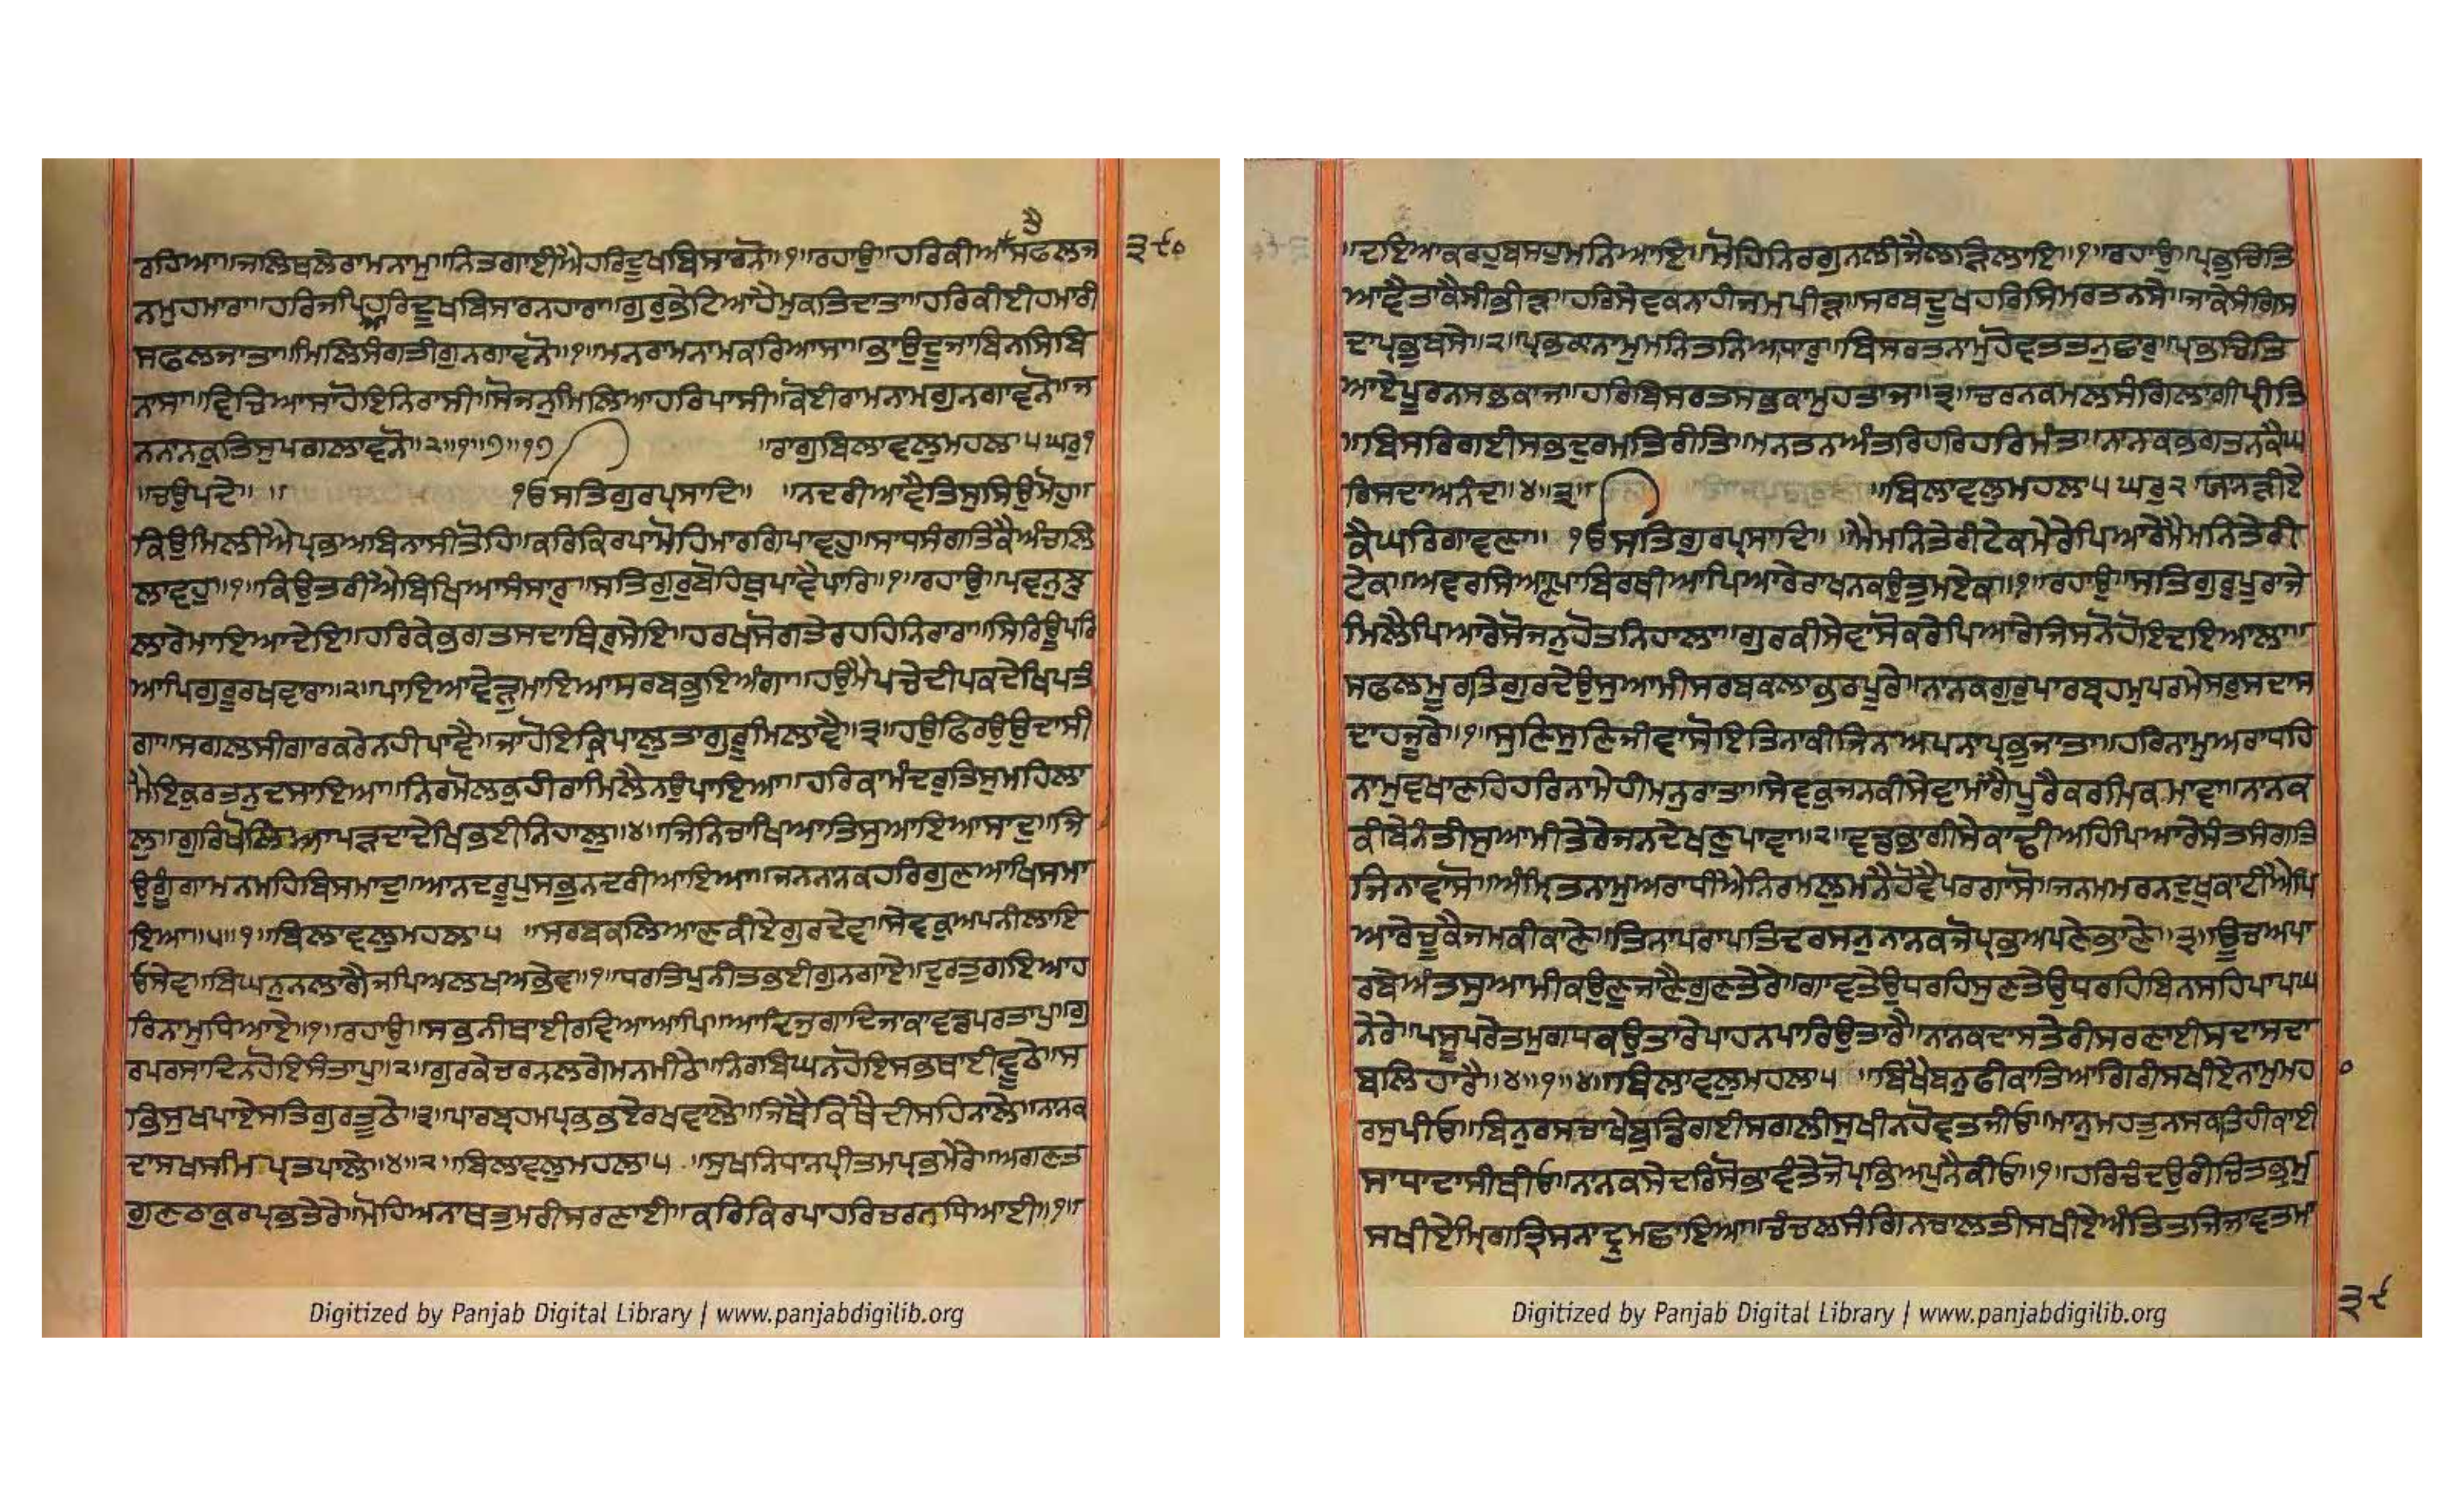 ਰਹਿਆ॥ਜਲਿਥਲੇਰਾਮਨਾਮੁ॥ਨਿਤਗਾਈਐਹਰਿਦੂਖਬਿਸਾਰਨੋ॥੧॥ਰਹਾਉ॥ਹਰਿਕੀਆਸਫਲਜ
੩੯੦
ਨਮੁਹਮਾਰਾ॥ਹਰਿਜਪਿਹਰਿਦੂਖਬਿਸਾਰਨਹਾਰਾ॥ਗੁਰੁਭੇਟਿਆਹੈਮੁਕਤਿਦਾਤਾ॥ਹਰਿਕੀਈਹਮਾਰੀ
ਸਫਲਜਾਤਾ॥ਮਿਲਿਸੰਗਤੀਗੁਨਗਾਵਨੋ॥੧॥ਮਨਰਾਮਨਾਮਕਰਿਆਸਾ॥ਭਾਉਦੂਜਾਬਿਨਸਿਬਿ
ਨਾਸਾ॥ਵਿਚਿਆਸਾਹੋਇਨਿਰਾਸੀ॥ਸੋਜਨੁਮਿਲਿਆਹਰਿਪਾਸੀ॥ਕੋਈਰਾਮਨਾਮਗੁਨਗਾਵਨੋ॥ਜ
ਨਨਾਨਕੁਤਿਸੁਪਗਲਾਵਨੋ॥੨॥੧॥੭॥੧੭ ॥ਰਾਗੁਬਿਲਾਵਲੁਮਹਲਾ੫ਘਰੁ੧
॥ਚਉਪਦੇ॥ ॥ ੴਸਤਿਗੁਰਪ੍ਰਸਾਦਿ॥ ॥ਨਦਰੀਆਵੈਤਿਸੁਸਿਉਮੋਹੁ॥
ਕਿਉਮਿਲੀਐਪ੍ਰਭਅਬਿਨਾਸੀਤੋਹਿ॥ਕਰਿਕਿਰਪਾਮੋਹਿਮਾਰਗਿਪਾਵਹੁ॥ਸਾਧਸੰਗਤਿਕੈਅੰਚਲਿ
ਲਾਵਹੁ॥੧॥ਕਿਉਤਰੀਐਬਿਖਿਆਸੰਸਾਰੁ॥ਸਤਿਗੁਰੁਬੋਹਿਥੁਪਾਵੈਪਾਰਿ॥੧॥ਰਹਾਉ॥ਪਵਨੁਝੁ
ਲਾਰੇਮਾਇਆਦੇਇ॥ਹਰਿਕੇਭਗਤਸਦਾਥਿਰੁਸੇਇ॥ਹਰਖਸੋਗਤੇਰਹਹਿਨਿਰਾਰਾ॥ਸਿਰਿਊਪਰਿ
ਆਪਿਗੁਰੂਰਖਵਾਰਾ॥੨॥ਪਾਇਆਵੇੜੁਮਾਇਆਸਰਬਭੁਇਅੰਗਾ॥ਹਉਮੈਪਚੇਦੀਪਕਦੇਖਿਪਤੰ
ਗਾ॥ਸਗਲਸੀਗਾਰਕਰੇਨਹੀਪਾਵੈ॥ਜਾਹੋਇਕ੍ਰਿਪਾਲੁਤਾਗੁਰੂਮਿਲਾਵੈ॥੩॥ਹਉਫਿਰਉਉਦਾਸੀ
ਮੈਇਕੁਰਤਨੁਦਸਾਇਆ॥ਨਿਰਮੋਲਕੁਹੀਰਾਮਿਲੈਨਉਪਾਇਆ॥ਹਰਿਕਾਮੰਦਰੁਤਿਸੁਮਹਿਲਾ
ਲੁ॥ਗੁਰਿਖੋਲਿਆਪੜਦਾਦੇਖਿਭਈਨਿਹਾਲੁ॥੪॥ਜਿਨਿਚਾਖਿਆਤਿਸੁਆਇਆਸਾਦੁ॥ਜਿ
ਉਗੂੰਗਾਮਨਮਹਿਬਿਸਮਾਦੁ॥ਆਨਦਰੂਪੁਸਭੁਨਦਰੀਆਇਆ॥ਜਨਨਾਨਕਹਰਿਗੁਣਆਖਿਸਮਾ
ਇਆ॥੫॥੧॥ਬਿਲਾਵਲੁਮਹਲਾ੫ ॥ਸਰਬਕਲਿਆਣਕੀਏਗੁਰਦੇਵ॥ਸੇਵਕੁਅਪਨੀਲਾਇ
ਓਸੇਵ॥ਬਿਘਨੁਨਲਾਗੈਜਪਿਅਲਖਅਭੇਵ॥੧॥ਧਰਤਿਪੁਨੀਤਭਈਗੁਨਗਾਏ॥ਦੁਰਤੁਗਇਆਹ
ਰਿਨਾਮੁਧਿਆਏ॥੧॥ਰਹਾਉ॥ਸਭਨੀਥਾਂਈਰਵਿਆਆਪਿ॥ਆਦਿਜੁਗਾਦਿਜਾਕਾਵਡਪਰਤਾਪੁ॥ਗੁ
ਰਪਰਸਾਦਿਨਹੋਇਸੰਤਾਪੁ॥੨॥ਗੁਰਕੇਚਰਨਲਗੇਮਨਮੀਠੇ॥ਨਿਰਬਿਘਨਹੋਇਸਭਥਾਂਈਵੂਠੇ॥ਸ
ਭਿਸੁਖਪਾਏਸਤਿਗੁਰਤੂਠੇ॥੩॥ਪਾਰਬ੍ਰਹਮਪ੍ਰਭਭਏਰਖਵਾਲੇ॥ਜਿਥੈਕਿਥੈਦੀਸਹਿਨਾਲੇ॥ਨਾਨਕ
ਦਾਸਖਸਮਿਪ੍ਰਤਪਾਲੇ॥੪॥੨॥ਬਿਲਾਵਲੁਮਹਲਾ੫ ॥ਸੁਖਨਿਧਾਨਪ੍ਰੀਤਮਪ੍ਰਭਮੇਰੇ॥ਅਗਣਤ
ਗੁਣਠਾਕੁਰਪ੍ਰਭਤੇਰੇ॥ਮੋਹਿਅਨਾਥਤੁਮਰੀਸਰਣਾਈ॥ਕਰਿਕਿਰਪਾਹਰਿਚਰਨਧਿਆਈ॥੧॥
॥ਦਇਆਕਰਹੁਬਸਹੁਮਨਿਆਇ॥ਮੋਹਿਨਿਰਗੁਨਲੀਜੈਲੜਿਲਾਇ॥੧॥ਰਹਾਉ॥ਪ੍ਰਭੁਚਿਤਿ
ਆਵੈਤਾਕੈਸੀਭੀੜ॥ਹਰਿਸੇਵਕਨਾਹੀਜਮਪੀੜ॥ਸਰਬਦੂਖਹਰਿਸਿਮਰਤਨਸੇ॥ਜਾਕੇਸੰਗਿਸ
ਦਾਪ੍ਰਭੁਬਸੇ॥੨॥ਪ੍ਰਭਕਾਨਾਮੁਮਨਿਤਨਿਅਧਾਰੁ॥ਬਿਸਰਤਨਾਮੁਹੋਵਤਤਨੁਛਾਰੁ॥ਪ੍ਰਭਚਿਤਿ
ਆਏਪੂਰਨਸਭਕਾਜ॥ਹਰਿਬਿਸਰਤਸਭਕਾਮੁਹਤਾਜ॥੩॥ਚਰਨਕਮਲਸੰਗਿਲਾਗੀਪ੍ਰੀਤਿ
॥ਬਿਸਰਿਗਈਸਭਦੁਰਮਤਿਰੀਤਿ॥ਮਨਤਨਅੰਤਰਿਹਰਿਹਰਿਮੰਤ॥ਨਾਨਕਭਗਤਨਕੈਘ
ਰਿਸਦਾਅਨੰਦ॥੪॥੩॥ ॥ਬਿਲਾਵਲੁਮਹਲਾ੫ਘਰੁ੨ਯਾਨੜੀਏ
ਕੈਘਰਿਗਾਵਣਾ॥ ੴਸਤਿਗੁਰਪ੍ਰਸਾਦਿ॥ ॥ਮੈਮਨਿਤੇਰੀਟੇਕਮੇਰੇਪਿਆਰੇਮੈਮਨਿਤੇਰੀ
ਟੇਕ॥ਅਵਰਸਿਆਣਪਾਬਿਰਥੀਆਪਿਆਰੇਰਾਖਨਕਉਤੁਮਏਕ॥੧॥ਰਹਾਉ॥ਸਤਿਗੁਰੁਪੂਰਾਜੇ
ਮਿਲੈਪਿਆਰੇਸੋਜਨੁਹੋਤਨਿਹਾਲਾ॥ਗੁਰਕੀਸੇਵਾਸੋਕਰੇਪਿਆਰੇਜਿਸਨੋਹੋਇਦਇਆਲਾ॥
ਸਫਲਮੂਰਤਿਗੁਰਦੇਉਸੁਆਮੀਸਰਬਕਲਾਭਰਪੂਰੇ॥ਨਾਨਕਗੁਰੁਪਾਰਬ੍ਰਹਮੁਪਰਮੇਸਰੁਸਦਾਸ
ਦਾਹਜੂਰੇ॥੧॥ਸੁਣਿਸੁਣਿਜੀਵਾਸੋਇਤਿਨਾਕੀਜਿਨਅਪਨਾਪ੍ਰਭੁਜਾਤਾ॥ਹਰਿਨਾਮੁਅਰਾਧਹਿ
ਨਾਮੁਵਖਾਣਹਿਹਰਿਨਾਮੇਹੀਮਨੁਰਾਤਾ॥ਸੇਵਕੁਜਨਕੀਸੇਵਾਮਾਂਗੈਪੂਰੈਕਰਮਿਕਮਾਵਾ॥ਨਾਨਕ
ਕੀਬੇਨੰਤੀਸੁਆਮੀਤੇਰੇਜਨਦੇਖਣੁਪਾਵਾ॥੨॥ਵਡਭਾਗੀਸੇਕਾਢੀਅਹਿਪਿਆਰੇਸੰਤਸੰਗਤਿ
ਜਿਨਾਵਾਸੋ॥ਅੰਮ੍ਰਿਤਨਾਮੁਅਰਾਧੀਐਨਿਰਮਲੁਮਨੈਹੋਵੈਪਰਗਾਸੋ॥ਜਨਮਮਰਨਦੁਖੁਕਾਟੀਐਪਿ
ਆਰੇਚੂਕੈਜਮਕੀਕਾਣੇ॥ਤਿਨਾਪਰਾਪਤਿਦਰਸਨੁਨਾਨਕਜੋਪ੍ਰਭਅਪਣੇਭਾਣੇ॥੩॥ਊਚਅਪਾ
ਰਬੇਅੰਤਸੁਆਮੀਕਉਣੁਜਾਣੈਗੁਣਤੇਰੇ॥ਗਾਵਤੇਉਧਰਹਿਸੁਣਤੇਉਧਰਹਿਬਿਨਸਹਿਪਾਪਘ
ਨੇਰੇ॥ਪਸੂਪਰੇਤਮੁਗਧਕਉਤਾਰੇਪਾਹਨਪਾਰਿਉਤਾਰੈ॥ਨਾਨਕਦਾਸਤੇਰੀਸਰਣਾਈਸਦਾਸਦਾ
ਬਲਿਹਾਰੈ॥੪॥੧॥੪॥ਬਿਲਾਵਲੁਮਹਲਾ੫ ॥ਬਿਖੈਬਨੁਫੀਕਾਤਿਆਗਿਰੀਸਖੀਏਨਾਮੁਮਹ
ਰਸੁਪੀਓ॥ਬਿਨੁਰਸਚਾਖੇਬੁਡਿਗਈਸਗਲੀਸੁਖੀਨਹੋਵਤਜੀਓ॥ਮਾਨੁਮਹਤੁਨਸਕਤਿਹੀਕਾਈ
ਸਾਧਾਦਾਸੀਥੀਓ॥ਨਾਨਕਸੇਦਰਿਸੋਭਾਵੰਤੇਜੋਪ੍ਰਭਿਅਪੁਨੈਕੀਓ॥੧॥ਹਰਿਚੰਦਉਰੀਚਿਤਭ੍ਰਮੁ
ਸਖੀਏਮ੍ਰਿਗਤ੍ਰਿਸਨਾਦ੍ਰੁਮਛਾਇਆ॥ਚੰਚਲਸੰਗਿਨਚਾਲਤੀਸਖੀਏਅੰਤਿਤਜਿਜਾਵਤਮਾ
੩੯
Digitized by Panjab Digital Library | www.panjabdigilib.org
Digitized by Panjab Digital Library | www.panjabdigilib.org